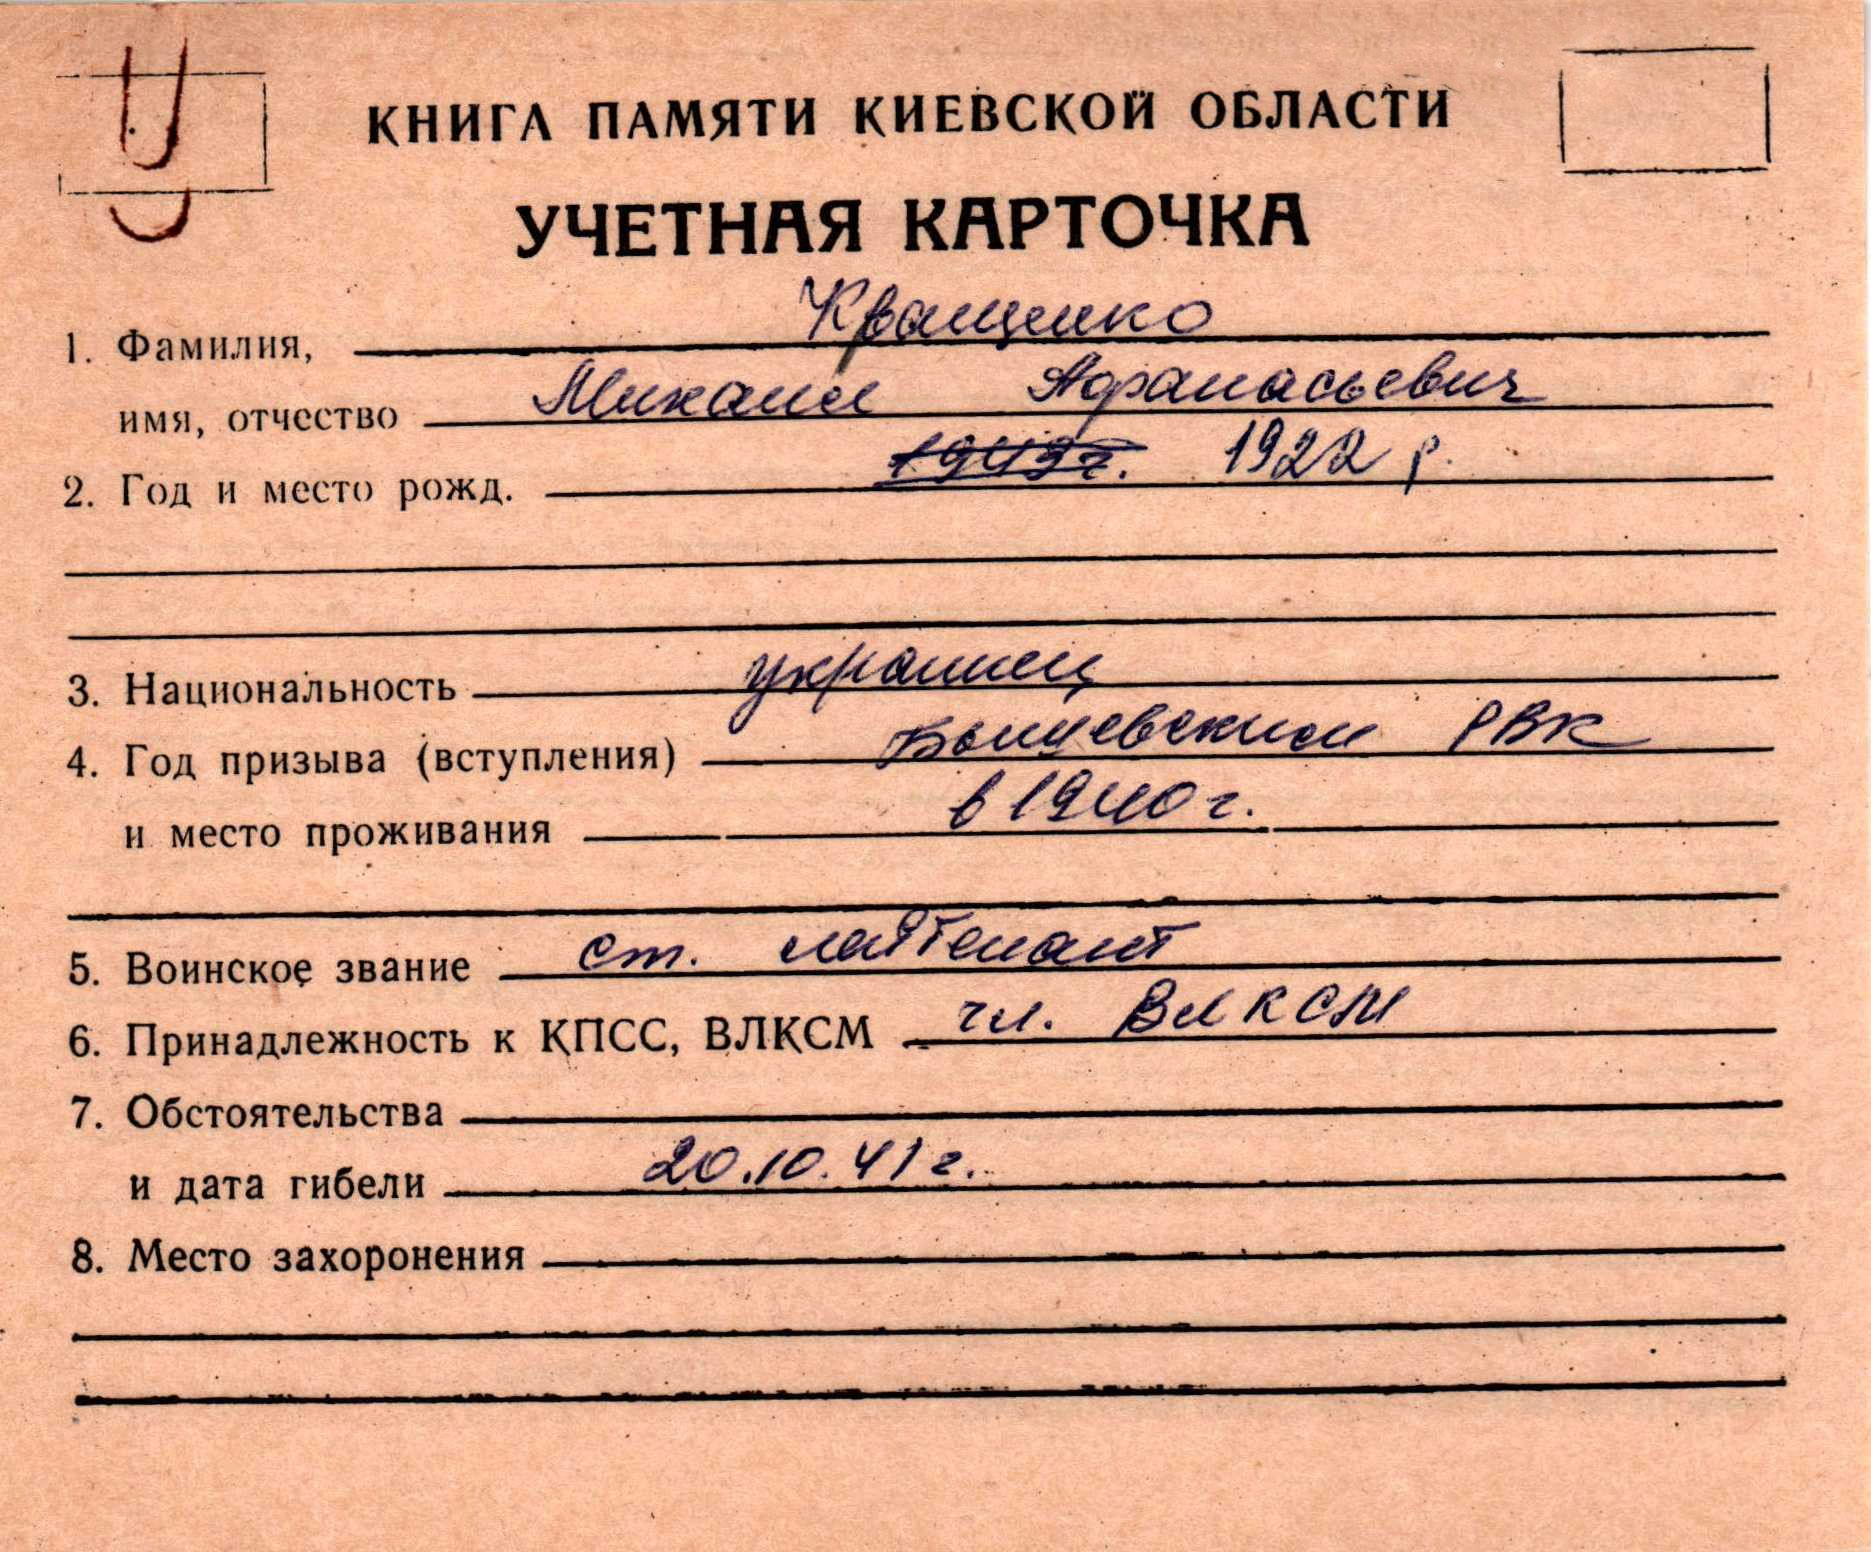 КНИГА ПАМЯТИ КИЕВСКОЙ ОБЛАСТИ
УЧЕТНАЯ КАРТОЧКА
1. Фамилия, Кващенко
имя, отчество Михаил Афанасьевич
2. Год и место рожд. 1922 р.
3. Национальность украинец
4. Год призыва (вступления) РВК
и место проживания в 1940 г.
5. Воинское звание ст. лейтенант
6. Принадлежность к КПСС, ВЛКСМ чл. ВЛКСМ
7. Обстоятельства
и дата гибели 20.10.41 г.
8. Место захоронения